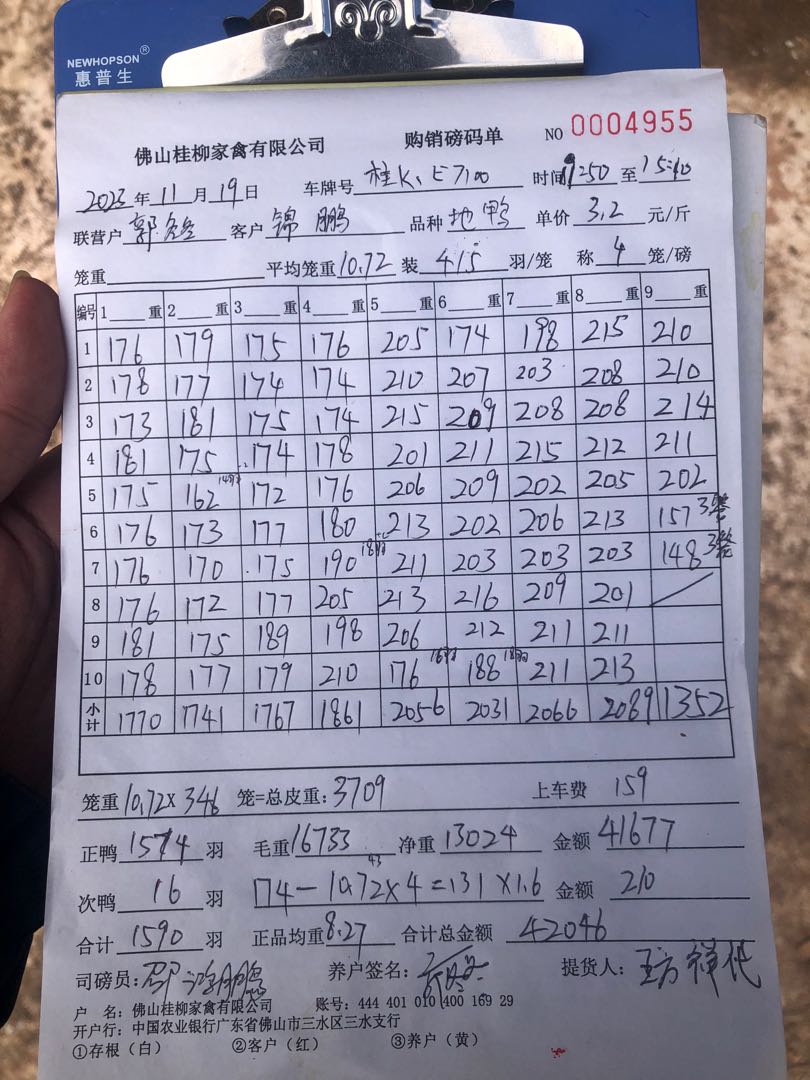 NEWHOPSON®
惠普生
佛山桂柳家禽有限公司 购销磅码单 NO 0004955
2023年11月19日 车牌号 桂K、E7100 时间 9:50 至 15:40
联营户 郭 客户 锦鹏 品种 地鸭 单价 3.2 元/斤
笼重 平均笼重10.72 装 4.15 羽/笼 称 4 笼/磅
编号 1 重 2 重 3 重 4 重 5 重 6 重 7 重 8 重 9 重
1 176 179 175 176 205 174 198 215 210
2 178 177 174 174 210 207 203 208 210
3 173 181 175 174 215 209 208 208 214
4 181 175 174 178 201 211 215 212 211
5 175 162 14羽 172 176 206 209 202 205 202
6 176 173 177 180 213 202 206 213 157 3笼
7 176 170 175 190 18羽 211 203 203 203 148 3笼
8 176 172 177 205 213 216 209 201
9 181 175 189 198 206 212 211 211
10 178 177 179 210 176 16羽 188 18羽 211 213
小计 1770 1741 1767 1861 2056 2031 2066 2089 1352
笼重 10.72× 346 笼=总皮重: 3709 上车费 159
正鸭 1574 羽 毛重 16733 净重 13024 金额 41677
43
次鸭 16 羽 174-10.72×4=131×1.6 金额 210
合计 1590 羽 正品均重 8.27 合计总金额 42046
司磅员: 邵鸿鹏 养户签名: 提货人:
户 名: 佛山桂柳家禽有限公司 账号: 444 401 010 400 169 29
开户行: 中国农业银行广东省佛山市三水区三水支行
①存根(白) ②客户(红) ③养户(黄)